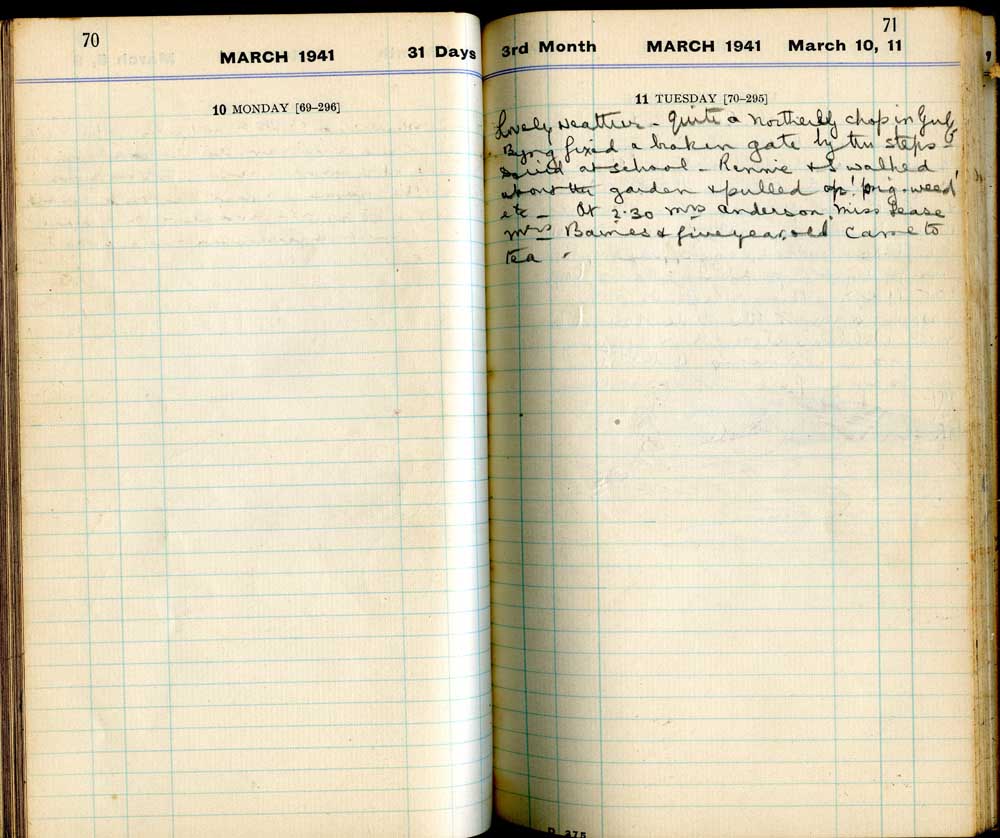 70
MARCH 1941
31 Days
10 MONDAY [69–296]
71
3rd Month
MARCH 1941
March 10, 11
11 TUESDAY [70–295]
Lovely weather - Quite a northerly chop in Gulf
Byng fixed a broken gate by the steps -
at school - Rennie & I walked
about the garden & pulled up 'pig-weed'
etc - At 2.30 Mrs Anderson, Miss Lease
Mrs Barnes & five year old came to
tea